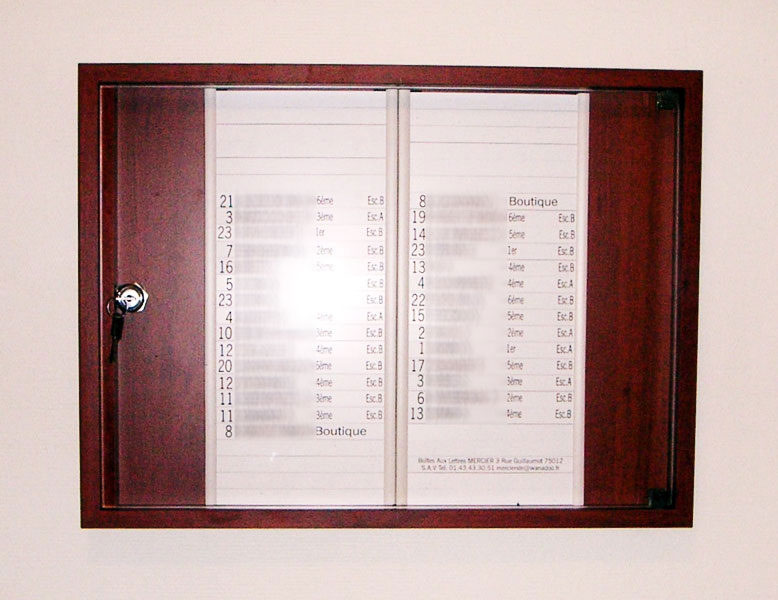 21 6ème Esc.B
3 3ème Esc.A
23 1er Esc.B
7 2ème Esc.B
16 5ème Esc.B
5 Esc.B
23 Esc.B
4 4ème Esc.A
10 3ème Esc.B
12 4ème Esc.B
20 6ème Esc.B
12 4ème Esc.B
11 3ème Esc.B
11 3ème Esc.B
8 Boutique
8 Boutique
19 6ème Esc.B
14 5ème Esc.B
23 1er Esc.B
13 4ème Esc.B
4 4ème Esc.A
22 6ème Esc.B
15 5ème Esc.B
2 2ème Esc.A
1 1er Esc.A
17 5ème Esc.B
3 3ème Esc.A
6 2ème Esc.B
13 4ème Esc.B
Boîtes Aux Lettres MERCIER 3 Rue Guillaumot 75012
S.A.V Tel. 01.43.43.30.51 merciende@wanadoo.fr